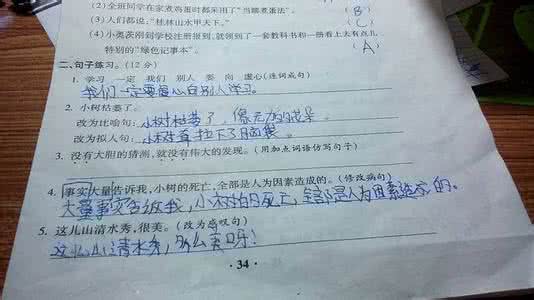 (2)全班同学在家煮鸡蛋时都采用了"当娜煮蛋法"。 (B)
(3)人们都说,"桂林山水甲天下。" (C)
(4)小奥茨刚到学校注册报到,就领到了一套教科书和一册看上去有点儿
特别的"绿色记事本"。 (A)
二、句子练习。(12分)
1. 学习 一定 我们 别人 要 向 虚心(连词成句)
我们一定要虚心向别人学习。
2. 小树枯萎了。
改为比喻句:小树枯萎了,像
改为拟人句:小树耷拉下了脑袋。
3. 没有大胆的猜测,就没有伟大的发现。(用加点词语仿写句子)
4. 事实大量告诉我,小树的死亡,全部是人为因素造成的。(修改病句)
大量事实告诉我,小树的死亡,全部是人为因素造成的。
5. 这儿山清水秀,很美。(改为感叹句)
这儿山清水秀,多么美呀!
· 34 ·